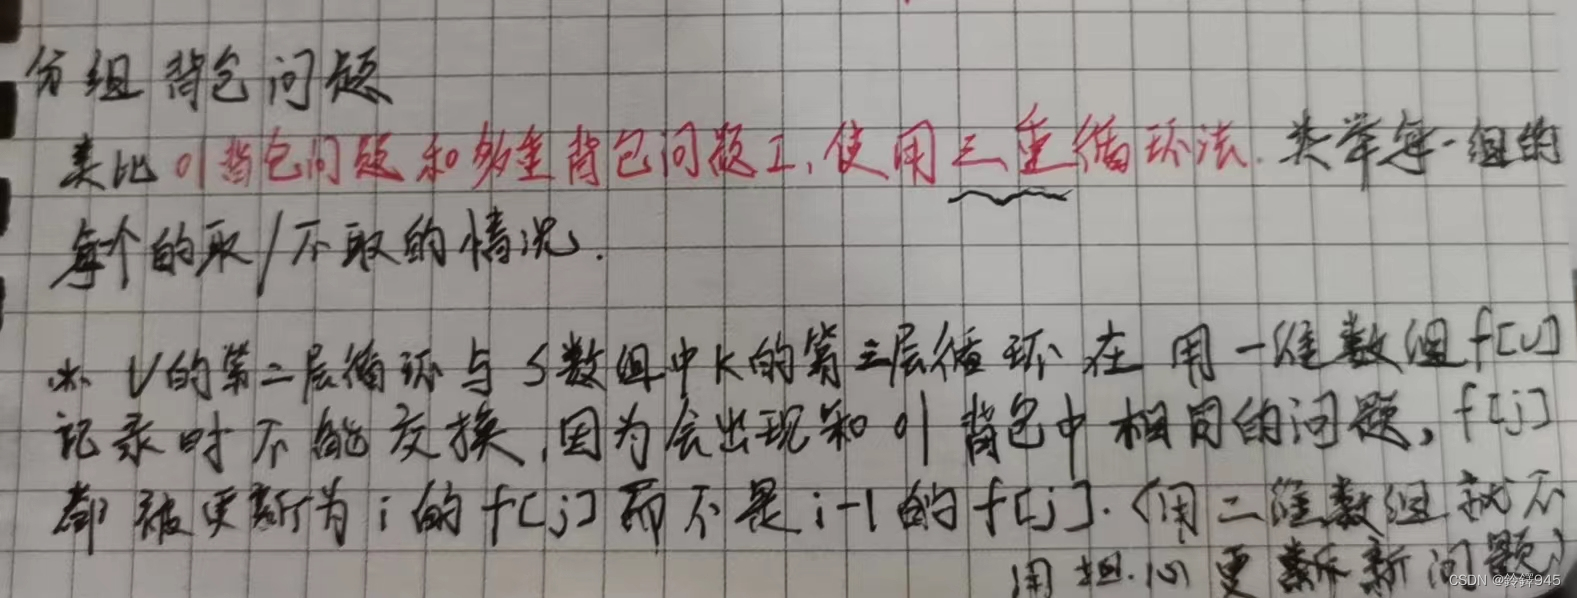 分组背包问题
类比01背包问题和多重背包问题I,使用三重循环法.类举每一组的
每个的取/不取的情况.
※ V的第二层循环与S数组中K的第三层循环在用一维数组f[v]
记录时不能交换,因为会出现和01背包中相同的问题,f[j]
都被更新为i的f[j]而不是i-1的f[j].(用二维数组就不
用担心更新新问题)
CSDN @铃铎945